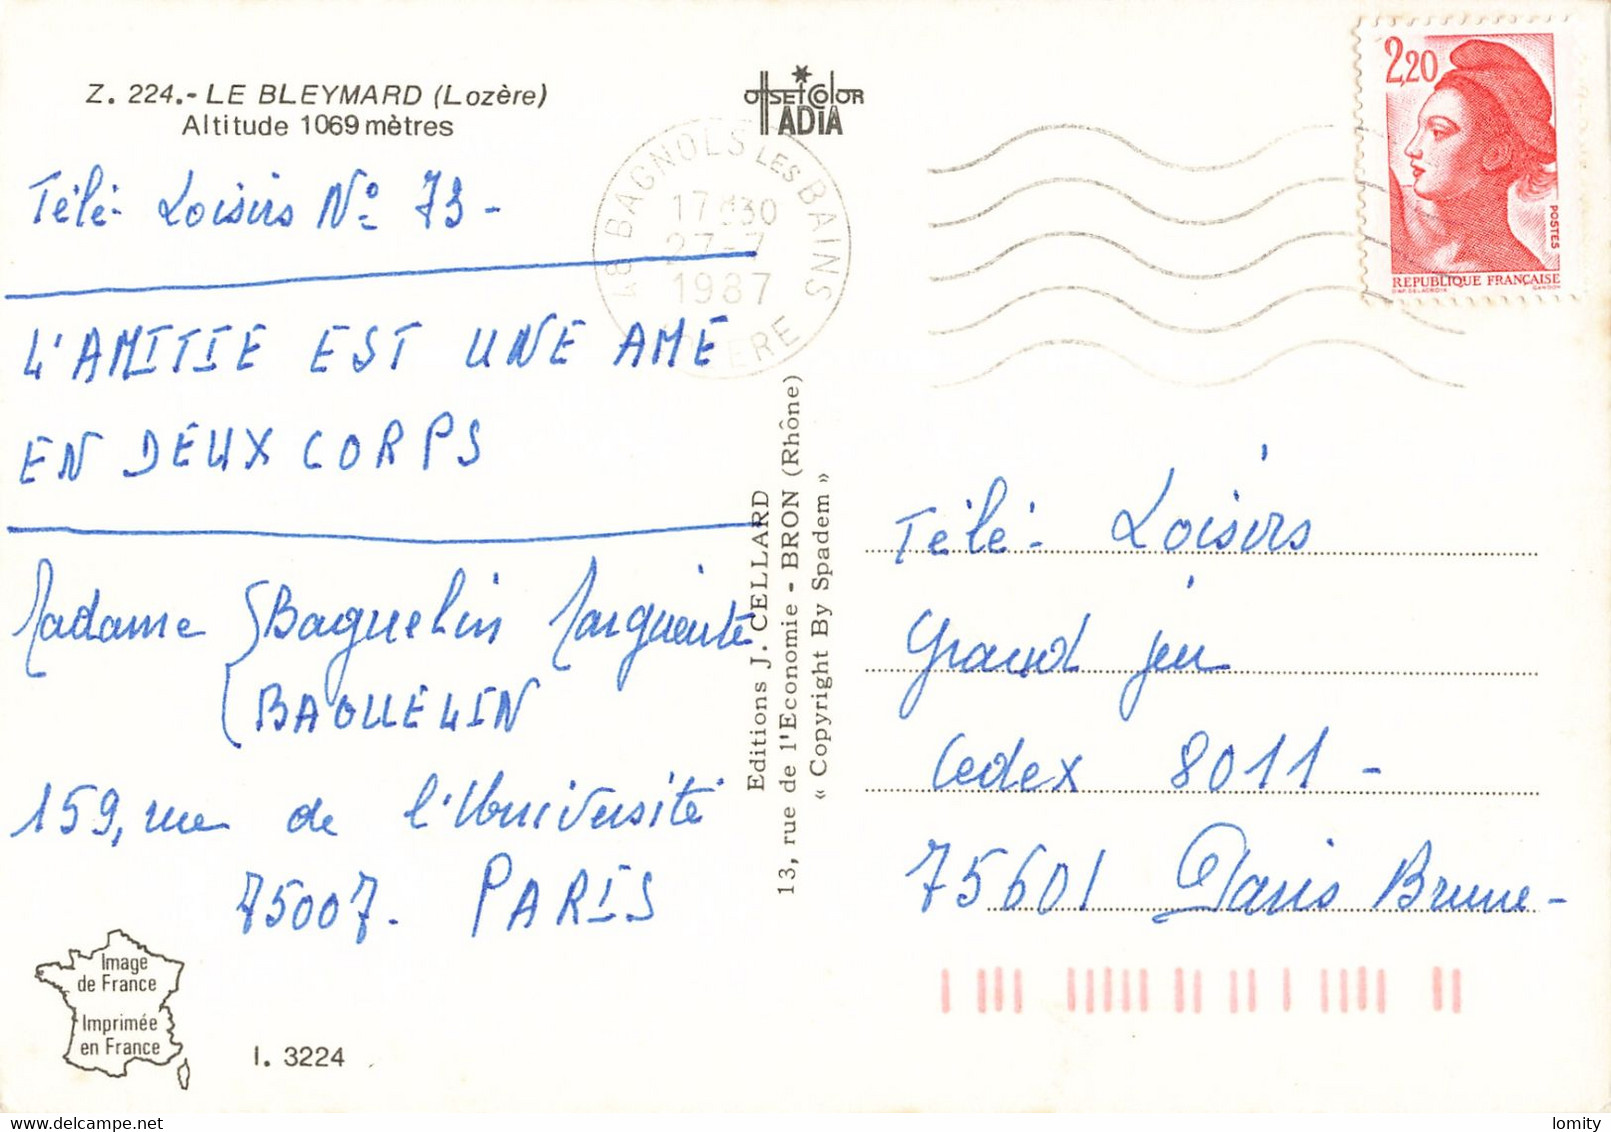 Z. 224.- LE BLEYMARD (Lozère)
Altitude 1069 mètres
Télé-Loisirs N° 73 -
L'AMITIE EST UNE AME
EN DEUX CORPS
Madame Baguelin Marguerite
BAGUELIN
159, rue de l'Université
75007. PARIS
Image
de France
Imprimée
en France
I. 3224
offset color
ADIA
48 BAGNOLS LES BAINS
17 H 30
27-7
1987
LOZERE
Editions J. CELLARD
13, rue de l'Economie - BRON (Rhône)
« Copyright By Spadem »
2,20
POSTES
REPUBLIQUE FRANÇAISE
DAP. DELACROIX GANDON
Télé-Loisirs
Grand jeu
Cedex 8011 -
75601 Paris Brune -
lomity